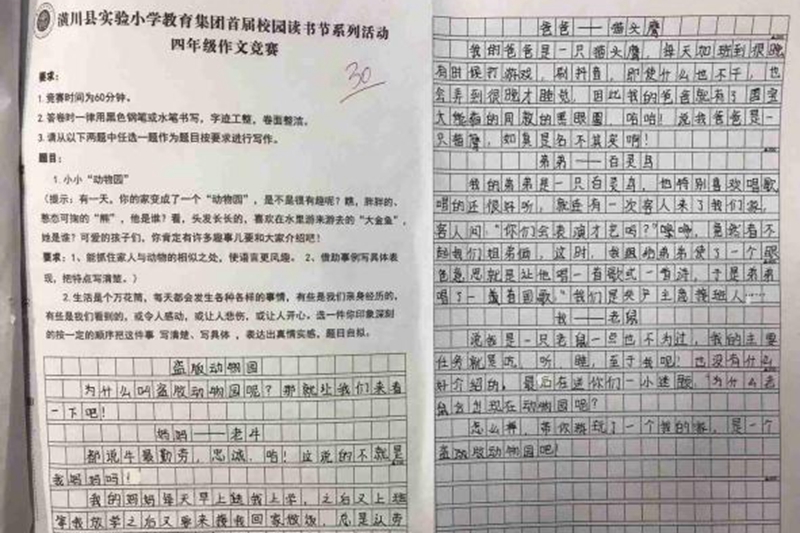 潢川县实验小学教育集团首届校园读书节系列活动
四年级作文竞赛
30
要求：
1.竞赛时间为60分钟。
2.答卷时一律用黑色钢笔或水笔书写，字迹工整，卷面整洁。
3.请从以下两题中任选一题作为题目按要求进行写作。
题目：
1.小小“动物园”
(提示：有一天，你的家变成了一个“动物园”，是不是很有趣呢？瞧，胖胖的、
憨态可掬的“熊”，他是谁？看，头发长长的，喜欢在水里游来游去的“大金鱼”，
她是谁？可爱的孩子们，你肯定有许多趣事儿要和大家介绍吧！
要求：1、能抓住家人与动物的相似之处，使语言更风趣。 2、借助事例写具体表
现，把特点写清楚。)
2.生活是个万花筒，每天都会发生各种各样的事情，有些是我们亲身经历的，
有些是我们看到的，或令人感动，或让人悲伤，或让人开心，选一件你印象深刻
的按一定的顺序把这件事 写清楚、写具体 ，表达出真情实感，题目自拟。
盗版动物园
为什么叫盗版动物园呢？那就让我们来看
一下吧！
妈妈——老牛
都说牛最勤劳，忠诚，哈！这说的不就是
我妈妈吗！
我的妈妈每天早上送我上学，之后又上班
等我放学之后又要来接我回家做饭，总是认劳
爸爸——猫头鹰
我的爸爸是一只猫头鹰，每天加班到很晚
有时候打游戏，刷抖音，即使什么也不干，也
会弄到很晚才睡觉，因此我的爸爸就有了国宝
大熊猫的同款的黑眼圈，哈哈！说我爸爸是一
只猫鹰，如真是名不其实啊！
弟弟——百灵鸟
我的弟弟是一只百灵鸟，他特别喜欢唱歌
唱的还很好听，就连有一次客人来了我们家，
客人问“你们会表演才艺吗？”嘿嘿，竟然看不
起我们姐弟俩，这时，我跟弟弟使了一个眼
色意思就是让他唱一首歌或一首诗，于是弟弟
唱了一首国歌“我们是共产主意接班人……
我——老鼠
说我是一只老鼠一点也不为过，我的主要
任务就是吃，听，睡，至于我呢！也没有什么
好介绍的，最后在送你们一小迷题“为什么老
鼠会出现在动物园呢？
怎么样，带你游玩了一个我的家，是一个
盗版版动物园吧！